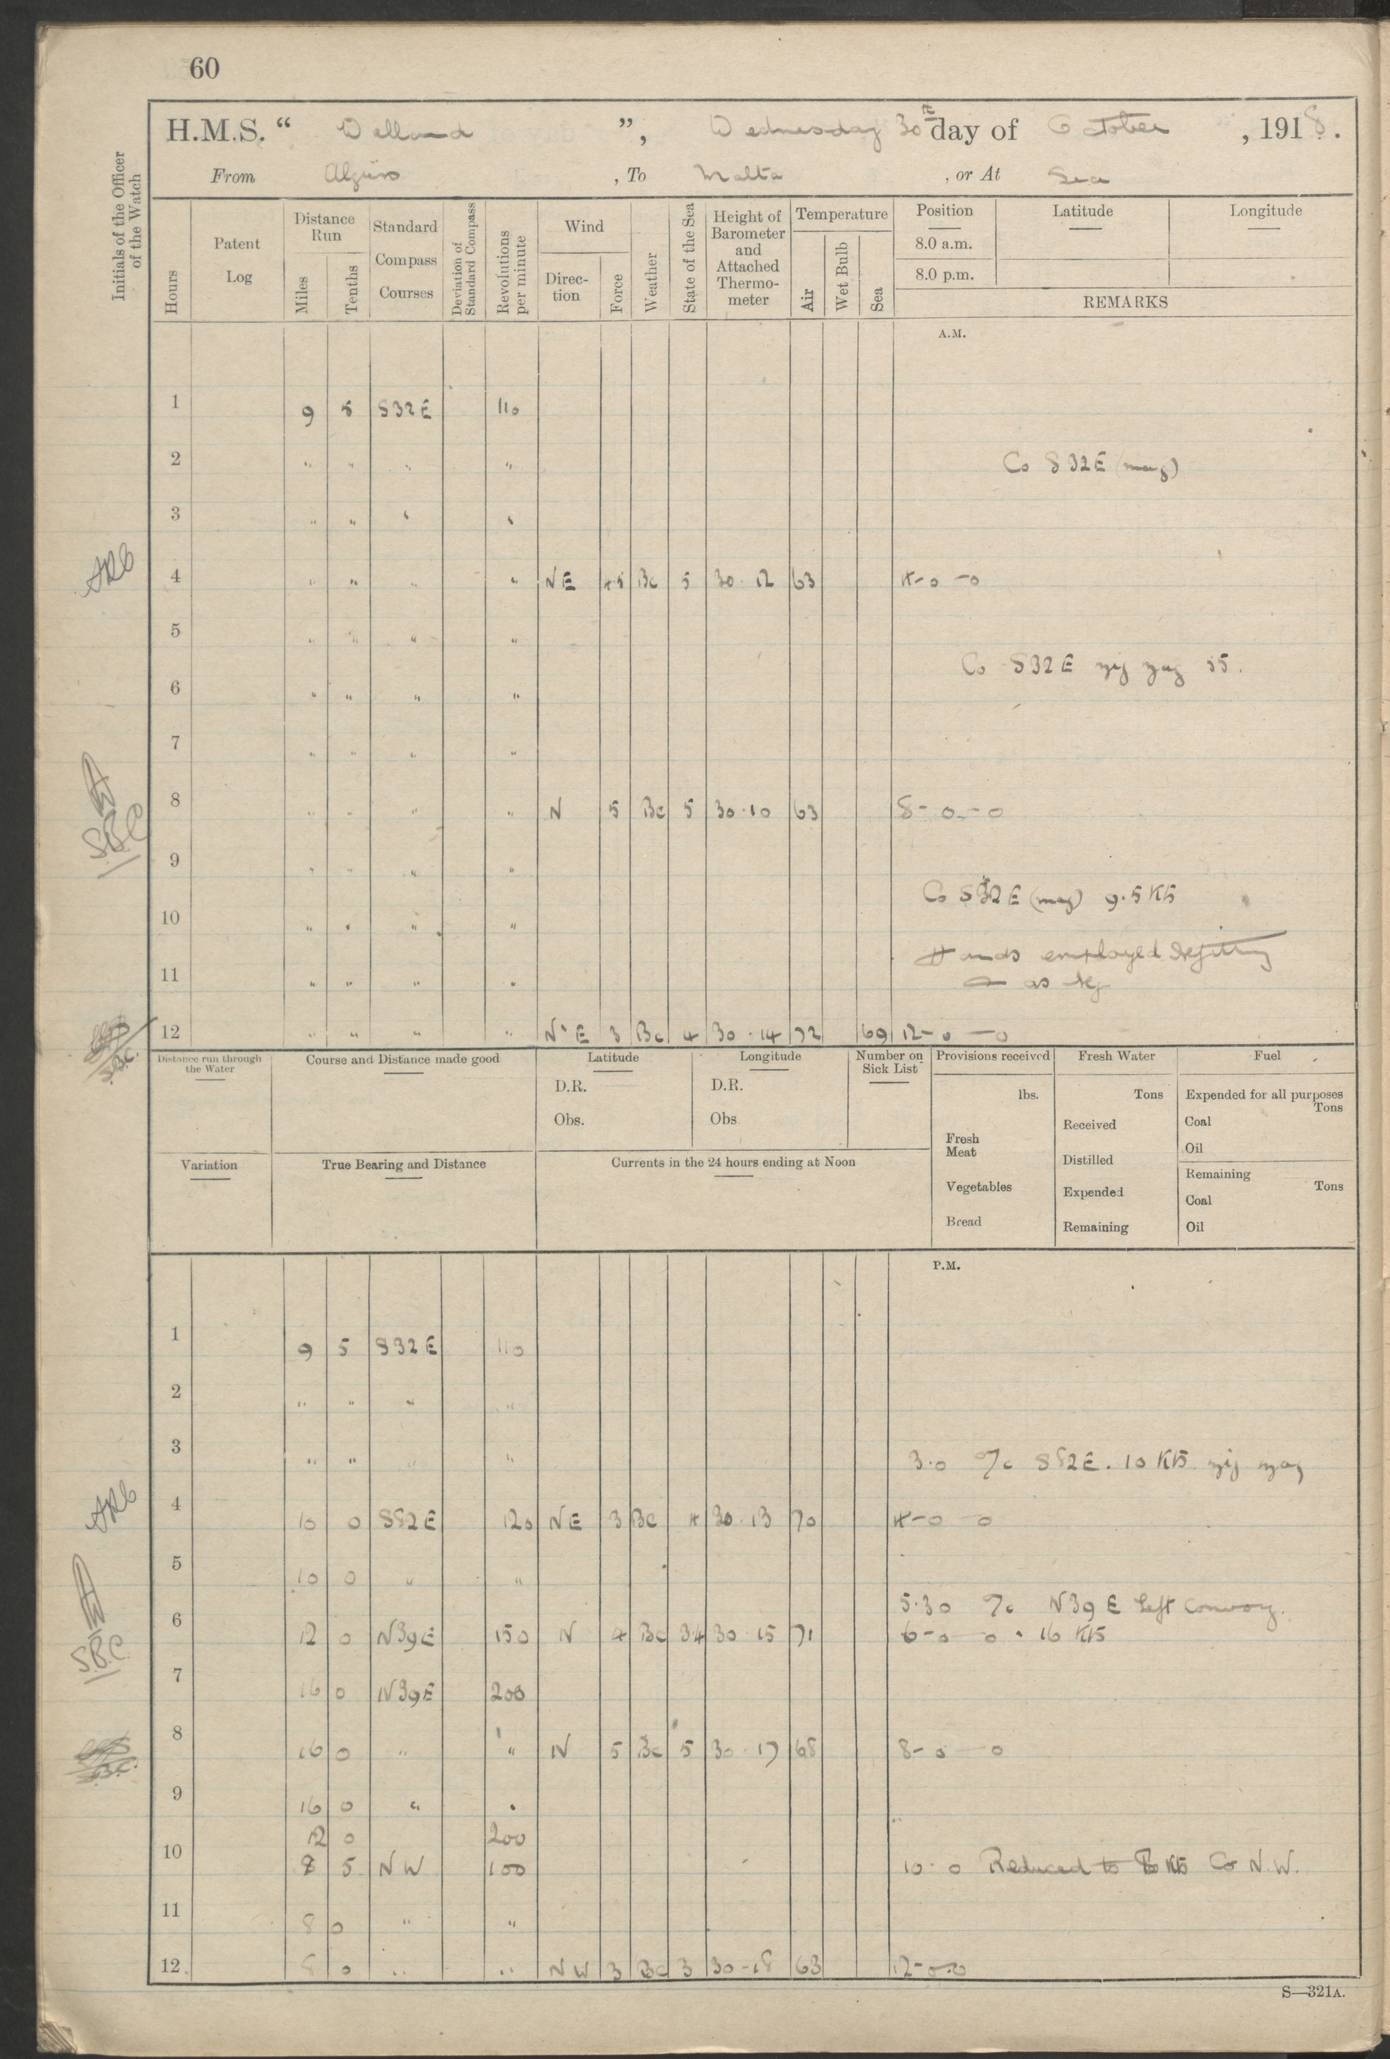 60
H.M.S. “ Welland ”, Wednesday 30th day of October , 1918.
From Algiers , To Malta , or At Sea
Initials of the Officer of the Watch
Hours
Patent Log
Distance Run
Miles
Tenths
Standard Compass Courses
Deviation of Standard Compass
Revolutions per minute
Wind
Direction
Force
Weather
State of the Sea
Height of Barometer and Attached Thermometer
Temperature
Air
Wet Bulb
Sea
Position
8.0 a.m.
8.0 p.m.
Latitude
Longitude
REMARKS
A.M.
1 9 5 S32E 110
2 " " " " Co S32E (mag)
3 " " " "
4 " " " " NE 45 Bc 5 30.12 63 4-0 -0
5 " " " "
Co S32E zig zag 15.
6 " " " "
7 " " " "
8 " " " " N 5 Bc 5 30.10 63 8-0-0
SBC
9 " " " "
Co S32E (mag) 9.5 Kts
10 " " " "
Hands employed refitting
11 " " " "
as req
12 " " " " N'E 3 Bc 4 30.14 72 69 12-0 -0
Distance run through the Water
Course and Distance made good
Latitude
D.R.
Obs.
Longitude
D.R.
Obs
Number on Sick List
Provisions received
lbs.
Fresh Meat
Vegetables
Bread
Fresh Water
Tons
Received
Distilled
Expended
Remaining
Fuel
Expended for all purposes
Tons
Coal
Oil
Remaining
Tons
Coal
Oil
Variation
True Bearing and Distance
Currents in the 24 hours ending at Noon
P.M.
1 9 5 S32E 110
2 " " " "
3 " " " " 3.0 a/c S82E. 10 Kts zig zag
4 10 0 S82E 120 NE 3 Bc 4 30.13 70 4-0 -0
5 10 0 " "
5.30 a/c N39E left Convoy.
6 12 0 N39E 150 N 4 Bc 34 30.15 71 6-0 -0 . 16 Kts
S.B.C.
7 16 0 N39E 200
8 16 0 " " N 5 Bc 5 30.17 68 8-0 -0
9 16 0 " "
12 0 200
10 8 5 NW 100 10.0 Reduced to 8 Kts Co N.W.
11 8 0 " "
12 8 0 " " NW 3 Bc 3 30-18 63 12-0-0
S—321A.